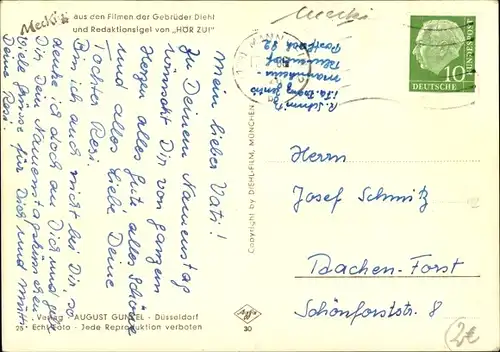 Mecki aus den Filmen der Gebrüder Diehl
und Redaktionsigel von „HÖR ZU!"
Mecki
Mein lieber Vati!
Zu Deinem Namenstag
wünscht Dir von ganzem
Herzen alles gute alles Schöne
und alles Liebe Deine
Tochter Resi.
Bin ich auch nicht bei Dir, so
denke ich doch an Dich und
Dir, Dein Namenstagskindchen
Viele Grüsse für Dich und Mutti
Deine Resi.
Copyright by DIEHL-FILM, MÜNCHEN
R. Schmitz
Mannheim-
Blumenau
Postfach 92
10
DEUTSCHE
BUNDESPOST
Herrn
Josef Schmitz
Aachen-Forst
Schönforststr. 8
Verlag AUGUST GUNKEL - Düsseldorf
Echt Foto - Jede Reproduktion verboten
30
2€